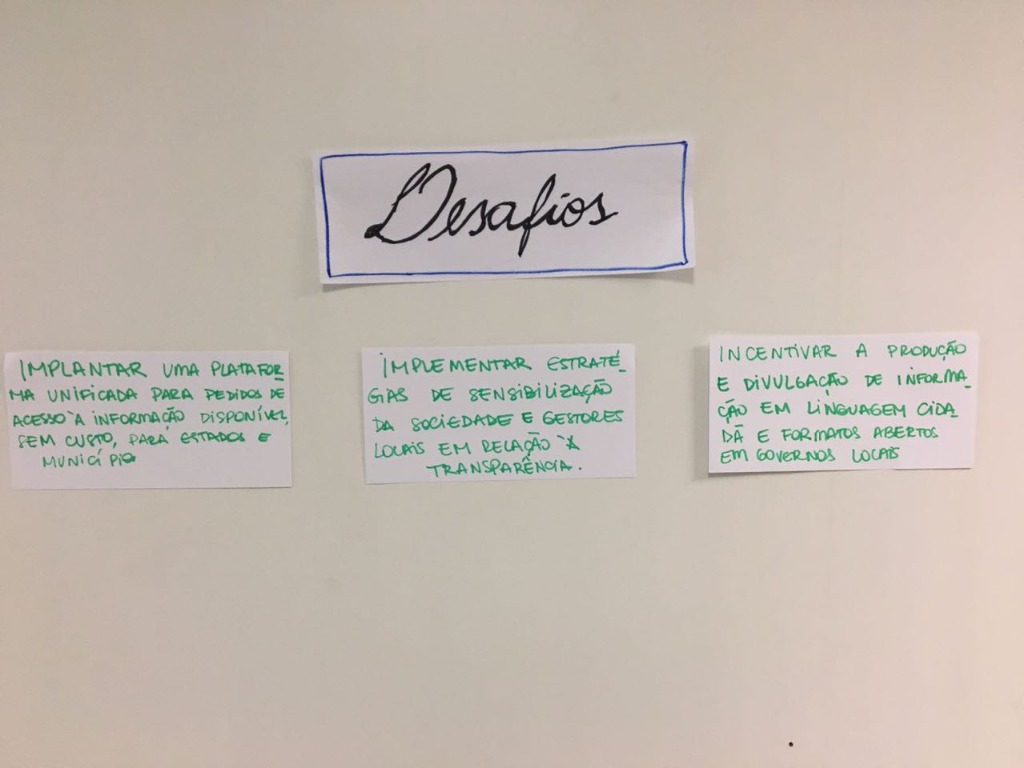 Desafios
IMPLANTAR UMA PLATAFOR_
MA UNIFICADA PARA PEDIDOS DE
ACESSO À INFORMAÇÃO DISPONÍVEL,
SEM CUSTO, PARA ESTADOS E
MUNICÍPIO
IMPLEMENTAR ESTRATÉ_
GIAS DE SENSIBILIZAÇÃO
DA SOCIEDADE E GESTORES
LOCAIS EM RELAÇÃO À
TRANSPARÊNCIA.
INCENTIVAR A PRODUÇÃO
E DIVULGAÇÃO DE INFORMA_
ÇÃO EM LINGUAGEM CIDA_
DÃ E FORMATOS ABERTOS
EM GOVERNOS LOCAIS